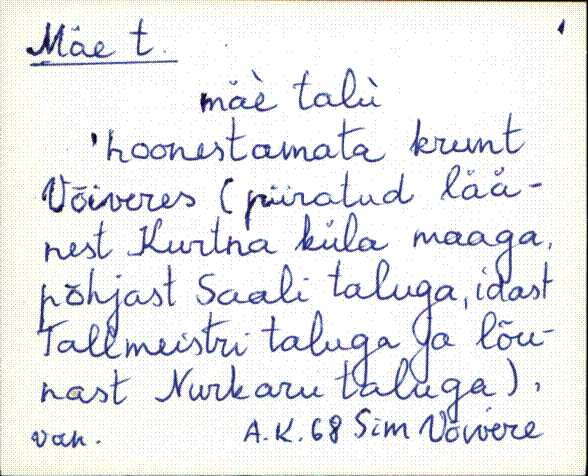 Mäe t.
mäè talù
'hoonestamata krunt
Võiveres (piiratud lää-
nest Kurtna küla maaga,
põhjast Saali taluga, idast
Tallmeistri taluga ja lõu-
nast Nurkaru taluga).
van. A.K.68 Sim Võivere